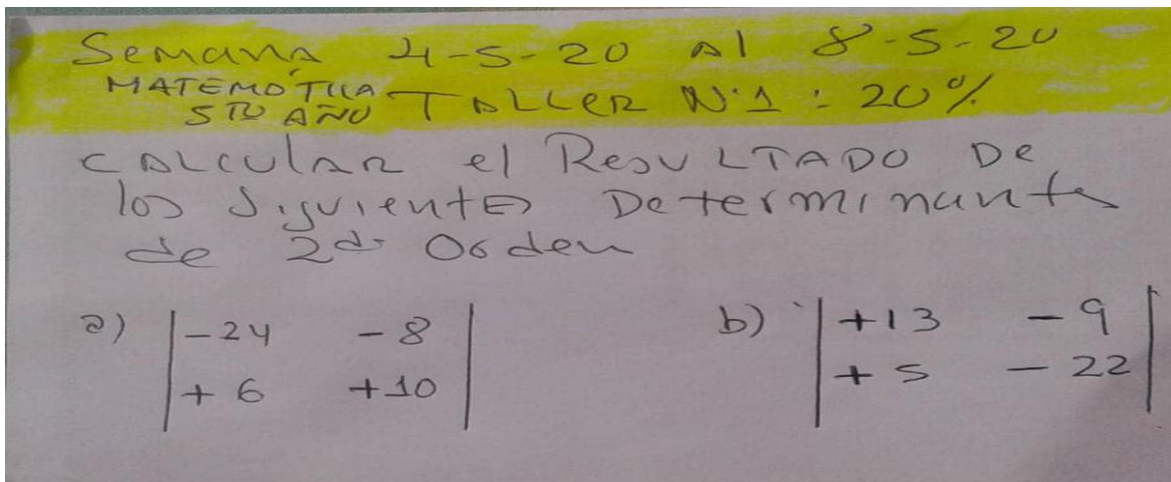 Semana 4-5-20 Al 8-5-20
MATEMÁTICA
5TO AÑO TALLER N.1 : 20%
CALCULAR el RESULTADO De
los SiguientEs Determinante
de 2do Orden
a) |-24 -8| b) |+13 -9|
|+6 +10| |+5 -22|